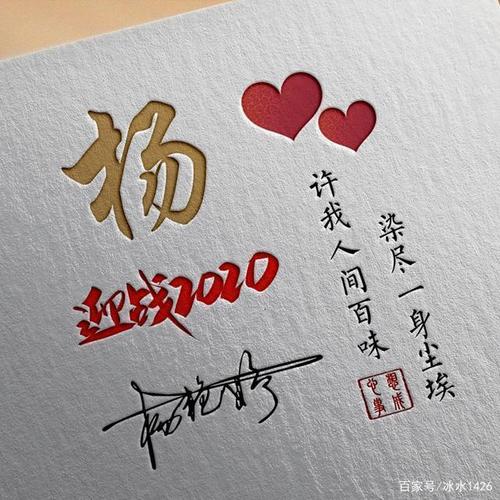 杨
迎战2020
染尽一身尘埃
许我人间百味
心想事成
百家号/冰水1426